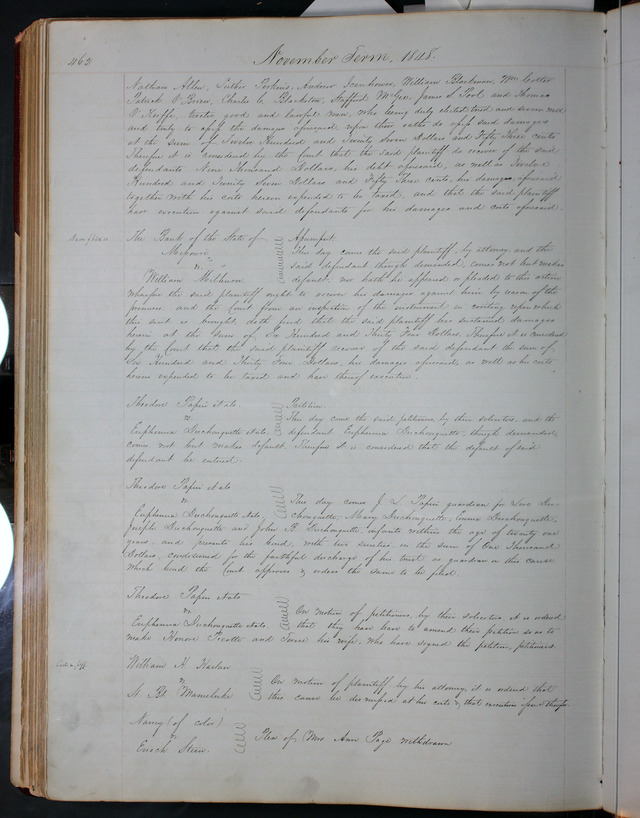 462
November Term, 1848.
Nathan Allen, Luther Perkins, Andrew Icenhouse, William Blackman, Wm
Patrick O'Brien, Charles C. Blackston, Stafford McGee, James S. Port and Thomas
O'Keeffe, twelve good and lawful men, who being duly elected tried and sworn well
and truly to assess the damages aforesaid, upon their oaths do assess said damages
at the sum of Twelve Hundred and Twenty Seven Dollars and Fifty Three Cents.
Therefore it is considered by the Court that the said plaintiff do recover of the said
defendants Nine Thousand Dollars, his debt aforesaid, as well as Twelve
Hundred and Twenty Seven Dollars and Fifty Three cents, his damages aforesaid
together with his costs herein expended to be taxed, and that the said plaintiff
have execution against said defendants for his damages and costs aforesaid.
The Bank of the State of
Missouri
vs
William Milburn
Assumpsit.
This day come the said plaintiff, by attorney, and the
said defendant though demanded, comes not but makes
default, nor hath he appeared or pleaded to this action
wherefore the said plaintiff ought to recover his damages against him by reason of the
premises and the Court from an inspection of the instrument in writing upon which
this suit is brought, doth find that the said plaintiff has sustained damages
herein at the sum of Six Hundred and Thirty Four Dollars. Therefore it is considered
by the Court that the said plaintiff recover of the said defendant the sum of
Six Hundred and Thirty Four Dollars, his damages aforesaid, as well as his costs
herein expended to be taxed and have thereof execution.
Theodore Papin et als
vs
Euphemia Duchouquette et als.
Partition.
This day come the said petitioners, by their solicitors, and the
defendant Euphemia Duchouquette, though demanded,
comes not but makes default. Therefore it is considered that the default of said
defendant be entered.
Theodore Papin et als
vs
Euphemia Duchouquette et als.
This day comes J. L. Papin guardian for Love Du-
chouquette, Mary Duchouquette, Emma Duchouquette,
Joseph Duchouquette and John B. Duchouquette, infants within the age of twenty one
years, and presents his bond, with two sureties in the sum of One Thousand
Dollars, conditioned for the faithful discharge of his trust as guardian in this cause
which bond the Court approves & orders the same to be filed.
Theodore Papin et als
vs
Euphemia Duchouquette et als.
On motion of petitioners, by their solicitors it is ordered
that they have leave to amend their petition so as to
make Honore Picotte and his wife, who have signed the petition, petitioners.
William H. Harlan
vs
St. Bt. Mameluke
On motion of plaintiff by his attorney, it is ordered that
this cause be dismissed at his costs & that execution issue therefor.
Nancy (of color)
vs
Enoch Steen.
Plea of Mrs Ann Page withdrawn